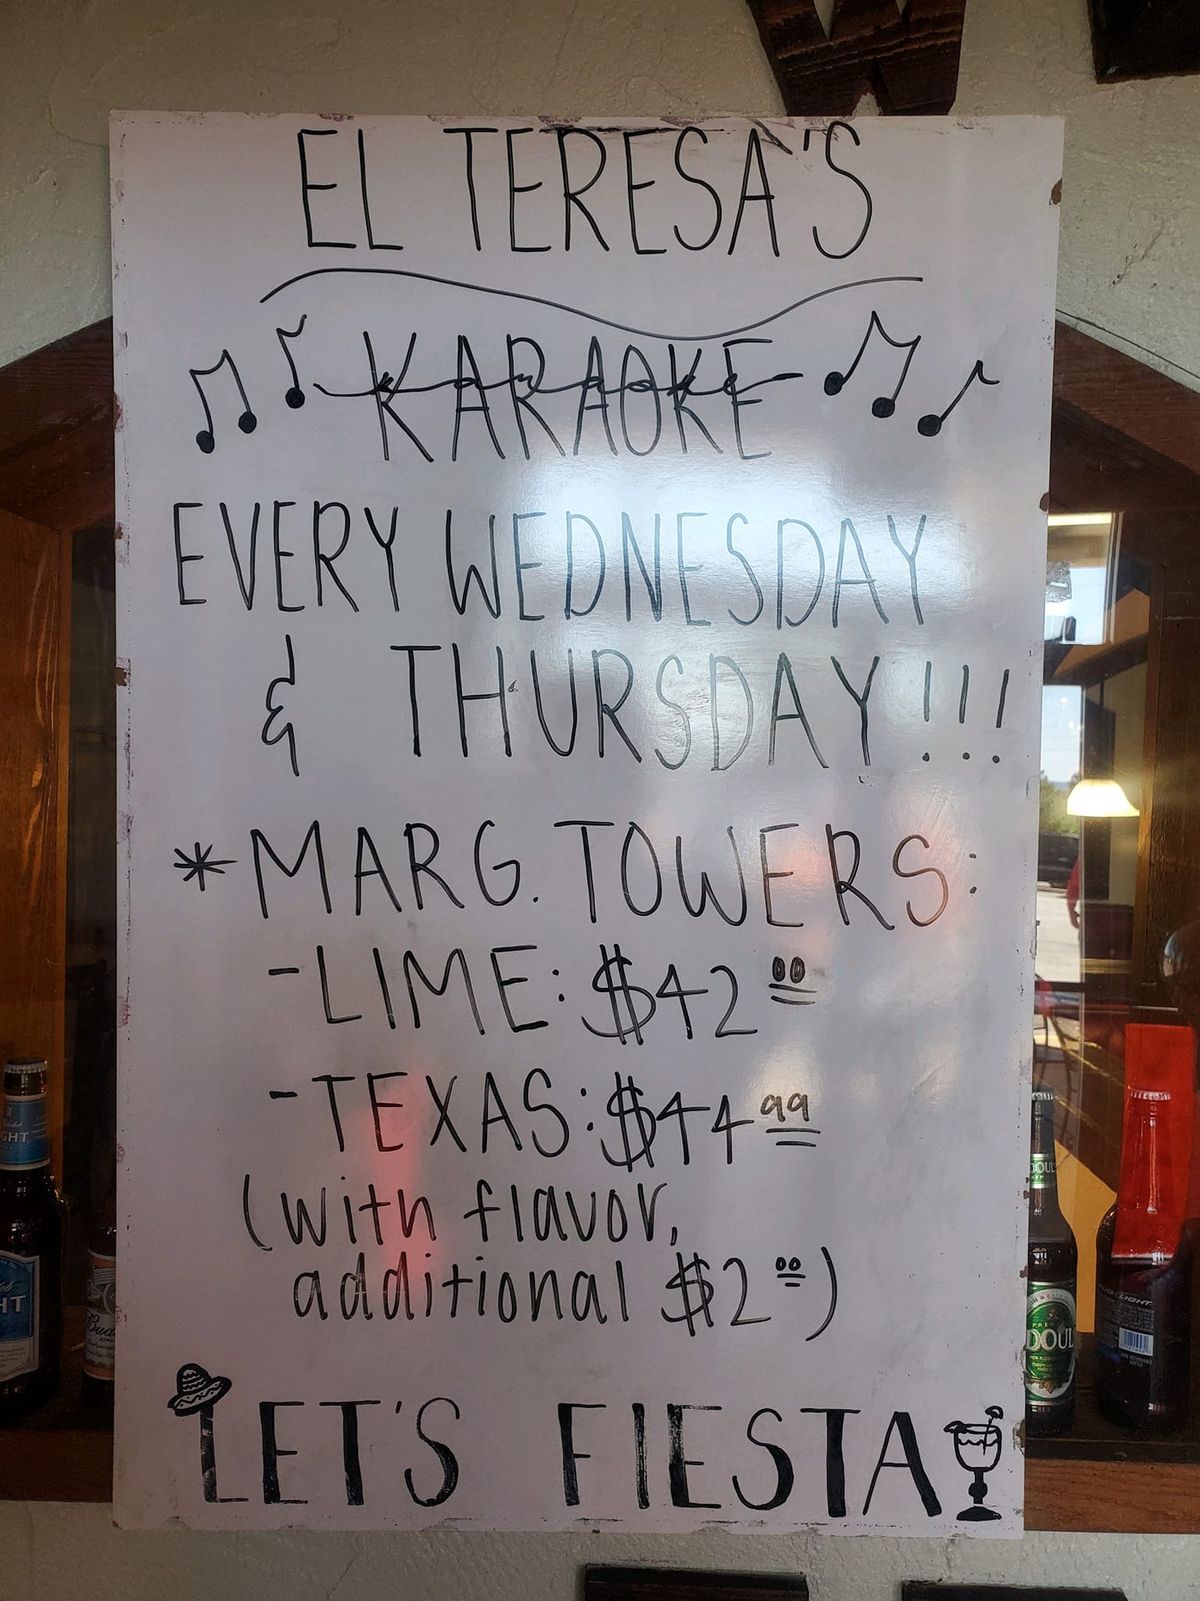 EL TERESA'S
KARAOKE
EVERY WEDNESDAY
& THURSDAY!!!
*MARG. TOWERS:
-LIME: $42 00
-TEXAS: $44 99
(with flavor,
additional $2 00)
LET'S FIESTA
GHT
HT
Bud
DOUL
DOUL
LIGHT